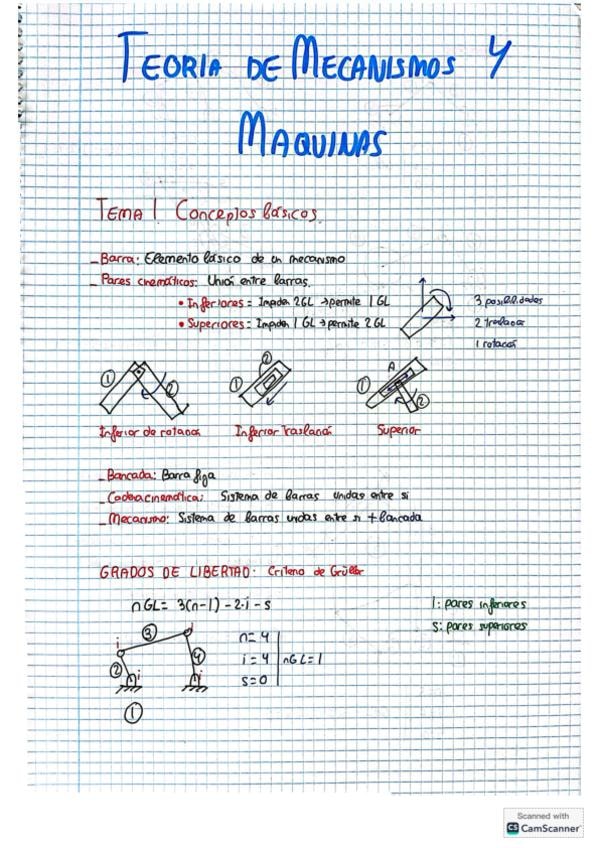 TEORIA DE MECANISMOS Y
MAQUINAS
TEMA 1 Conceptos básicos.
- Barra: Elemento básico de un mecanismo
- Pares cinemáticos: Unión entre barras.
• Inferiores = Impiden 2GL → permite 1GL
• Superiores: Impiden 1 GL → permite 2GL
3 posibilidades
2 traslación
1 rotación
1 2
1 2
A 1 2
Inferior de rotación Inferior traslación Superior
- Bancada: Barra fija
- Cadena cinemática: Sistema de barras unidas entre si
- Mecanismo: Sistema de barras unidas entre si + bancada
GRADOS DE LIBERTAD. Criterio de Grübler
nGL = 3(n-1) - 2·i - s
i: pares inferiores
S: pares superiores
i 3 i
2 4
i i
1
n = 4
i = 4 nGL = 1
s = 0
Scanned with
CS CamScanner